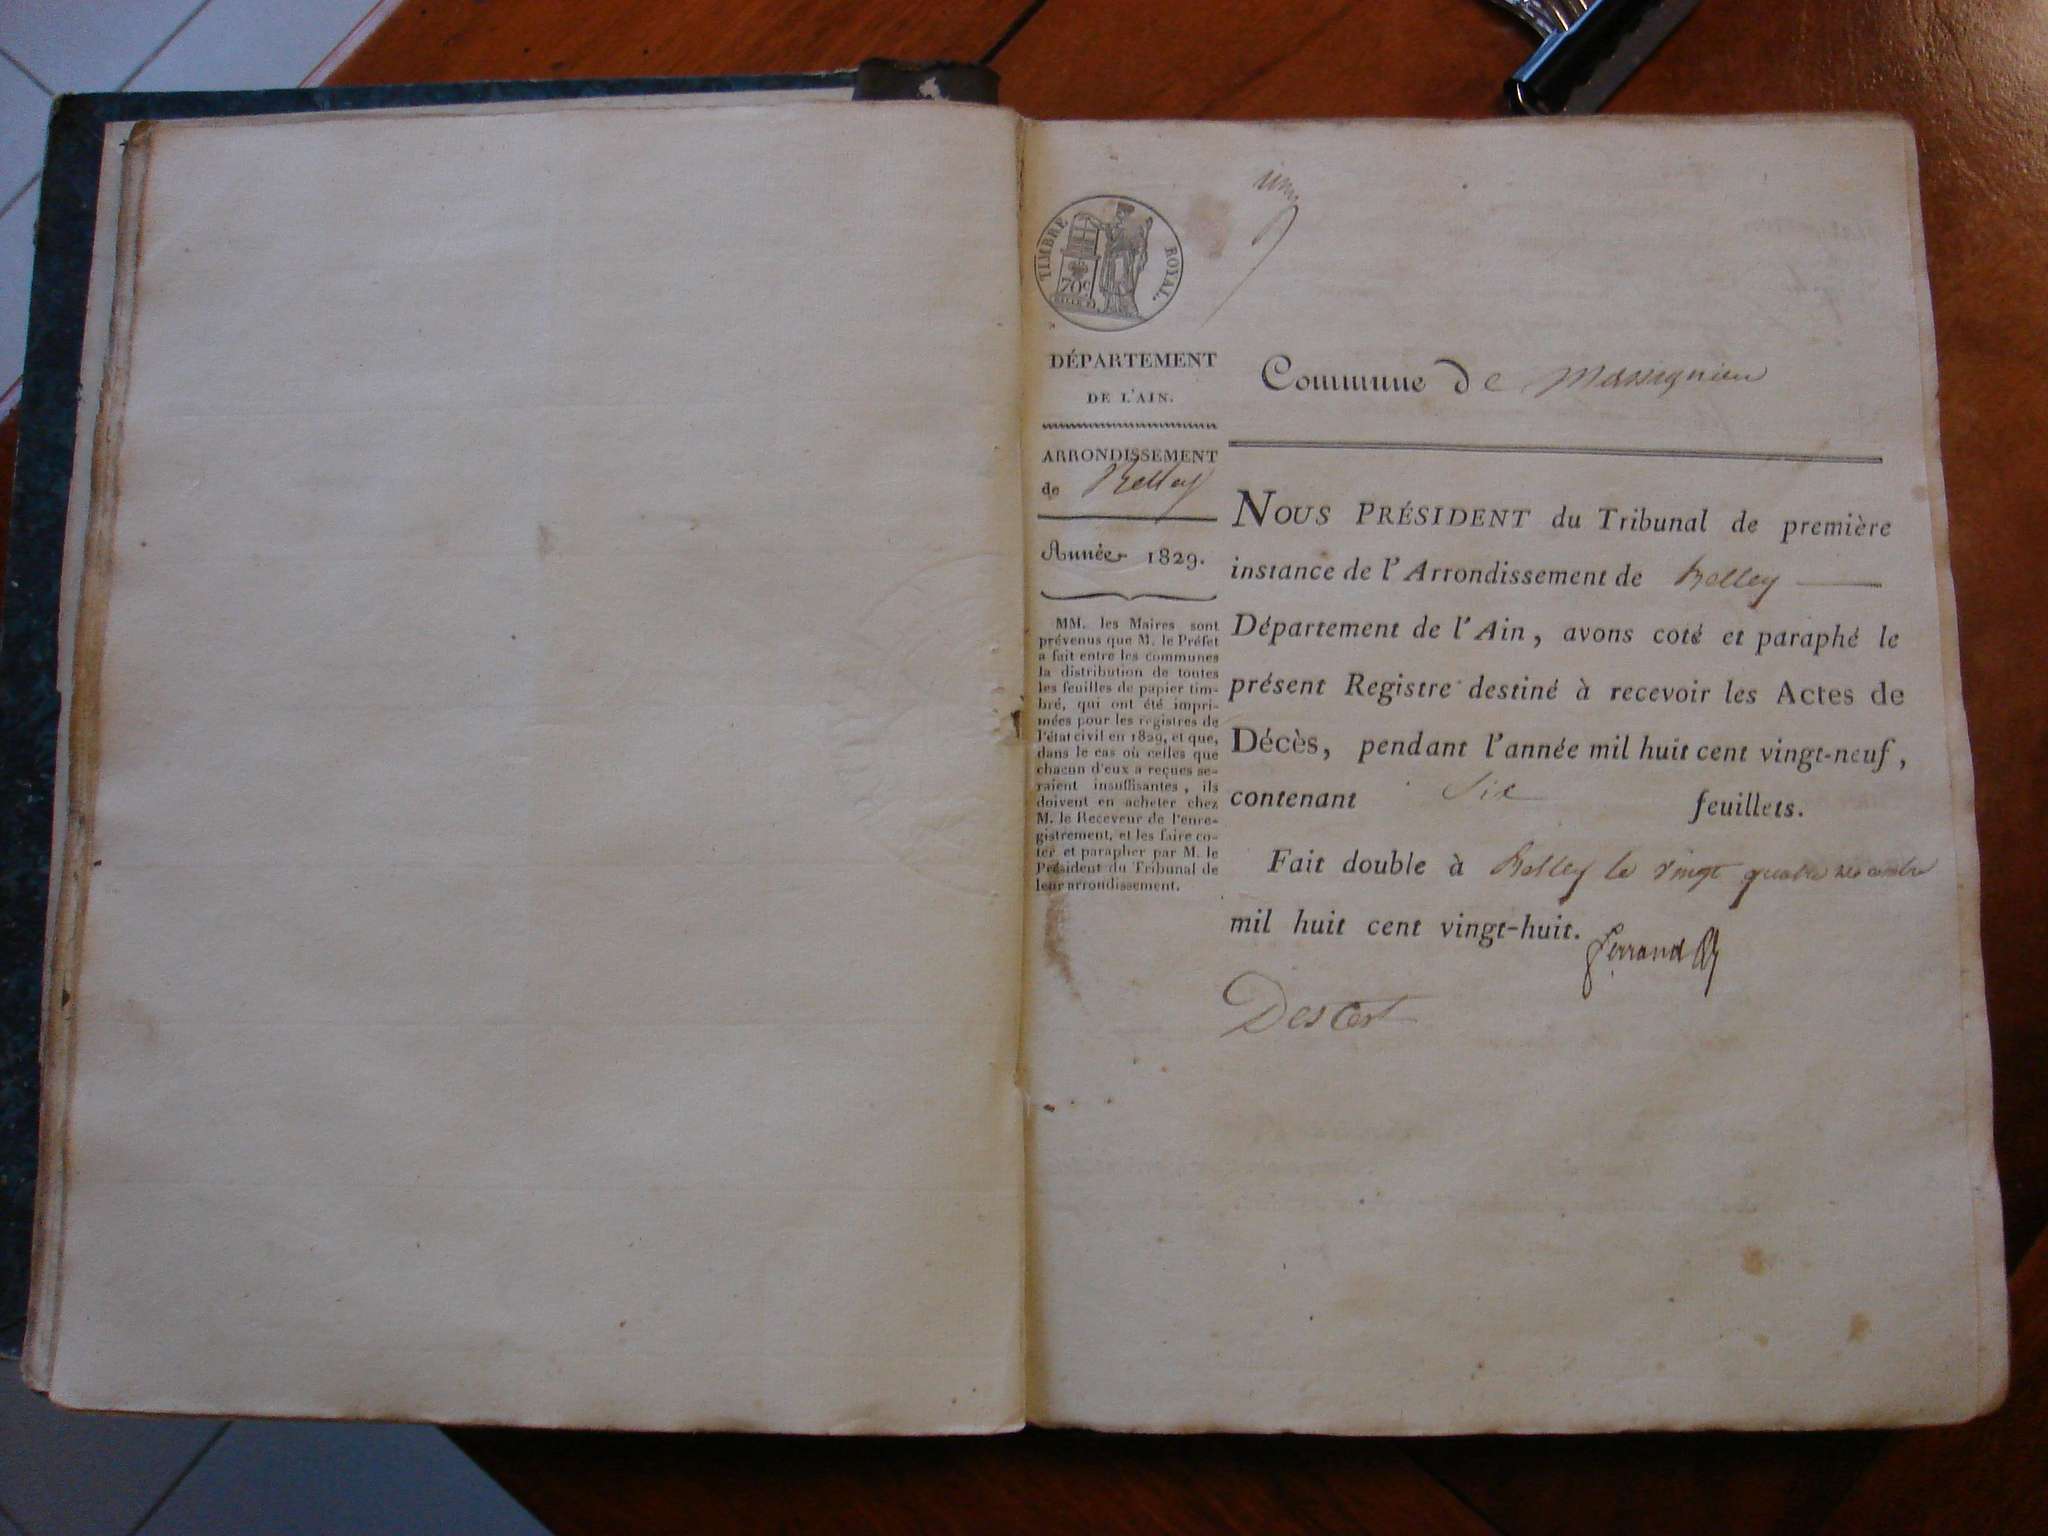 TIMBRE ROYAL.
70c
DÉPARTEMENT
DE L'AIN.
ARRONDISSEMENT
de Belley
Année 1829.
MM. les Maires sont
prévenus que M. le Préfet
a fait entre les communes
la distribution de toutes
les feuilles de papier tim-
bré, qui ont été impri-
mées pour les registres de
l'état civil en 1829, et que,
dans le cas où celles que
chacun d'eux a reçues se-
raient insuffisantes, ils
doivent en acheter chez
M. le Receveur de l'enre-
gistrement, et les faire co-
ter et parapher par M. le
Président du Tribunal de
leur arrondissement.
Commune de Massignieu
NOUS PRÉSIDENT du Tribunal de première
instance de l'Arrondissement de Belley
Département de l'Ain, avons coté et paraphé le
présent Registre destiné à recevoir les Actes de
Décès, pendant l'année mil huit cent vingt-neuf,
contenant Six feuillets.
Fait double à Belley le vingt quatre décembre
mil huit cent vingt-huit.
Ferrand